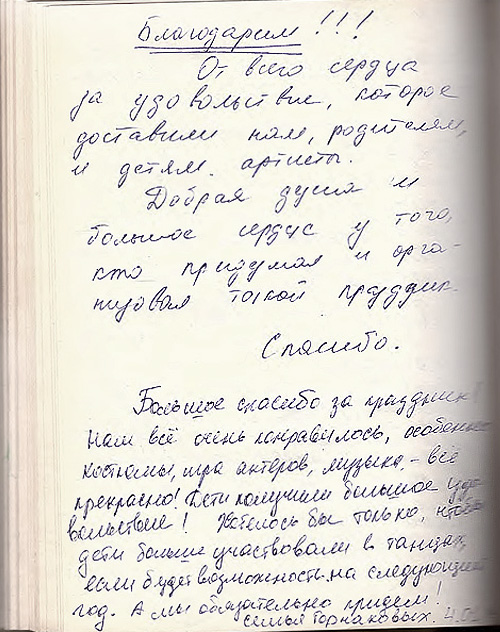 Благодарим!!!
От всего сердца
за удовольствие, которое
доставили нам, родителям,
и детям артисты.
Добрая душа и
большое сердце у того,
кто придумал и орга-
низовал такой праздник
Спасибо.
Большое спасибо за праздник!
Нам всё очень понравилось, особенно
костюмы, игра актёров, музыка, - всё
прекрасно! Дети получили большое удо-
вольствие! Хотелось бы только, чтобы
дети больше участвовали в танцах,
если будет возможность на следующий
год. А мы обязательно придем!
семья Горнаковых.